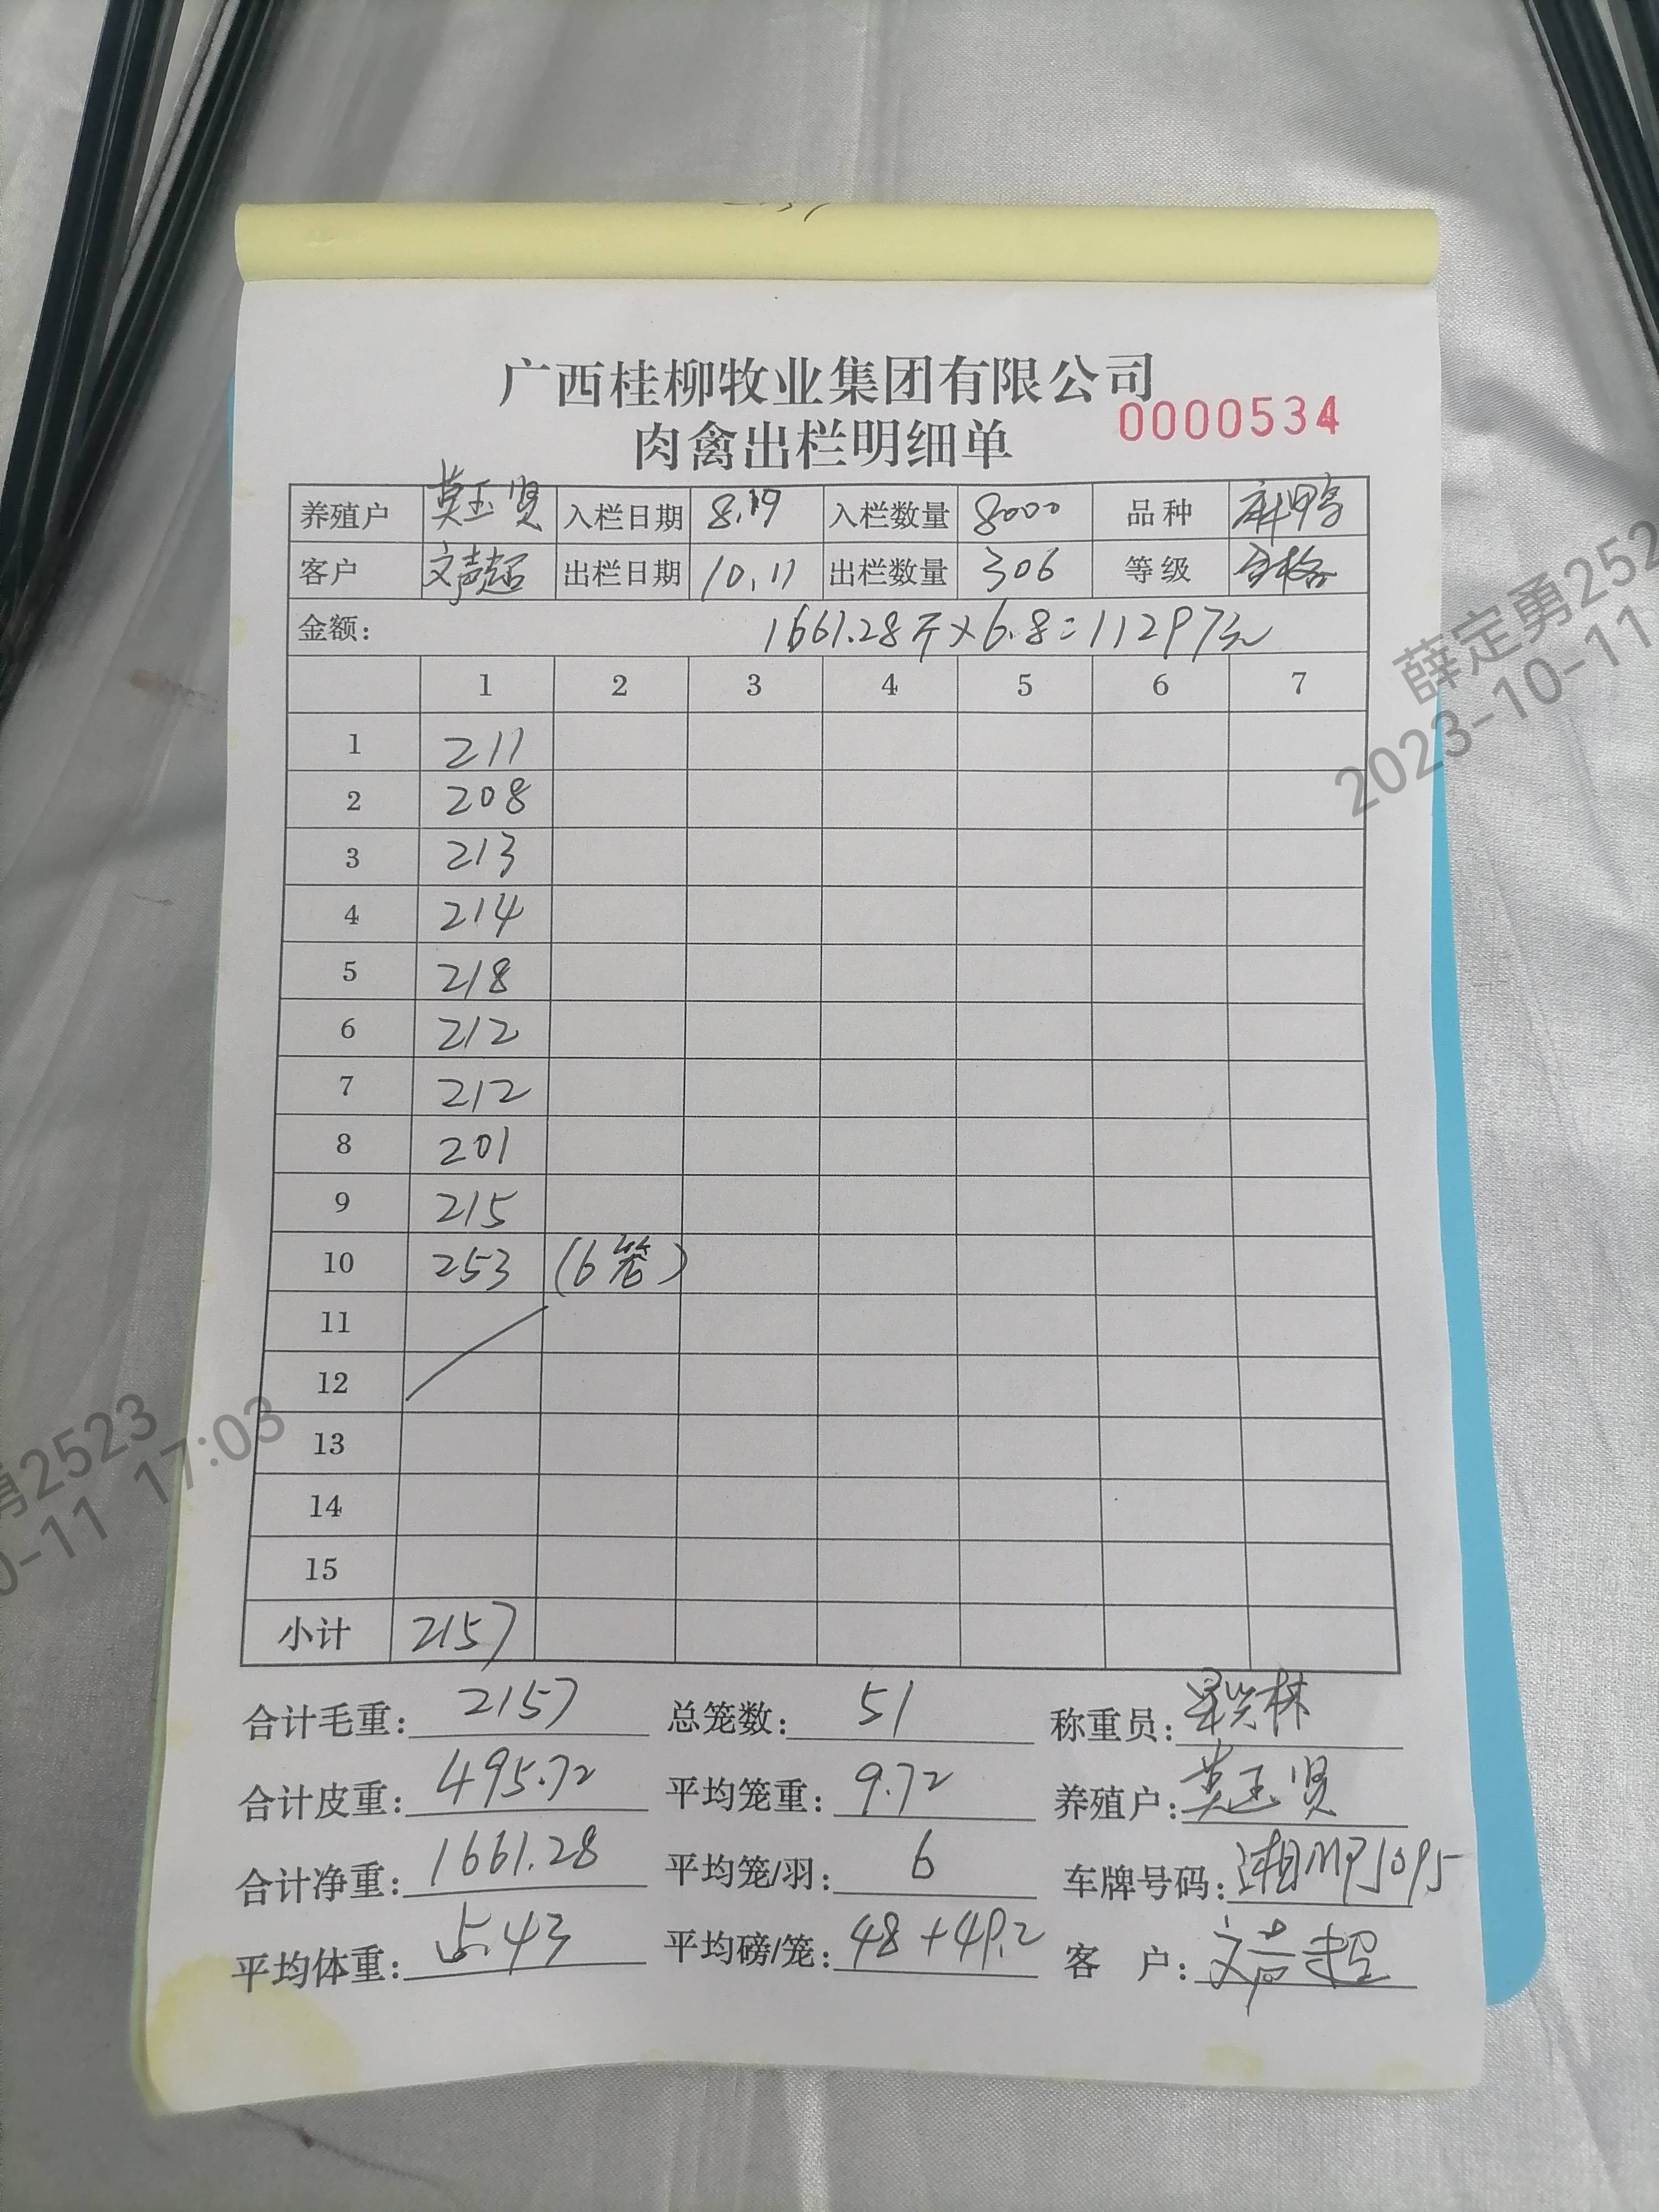 广西桂柳牧业集团有限公司
肉禽出栏明细单
0000534
养殖户 莫玉贤 入栏日期 8.19 入栏数量 8000 品种 麻鸭
客户 文声超 出栏日期 10.11 出栏数量 306 等级 合格
金额: 1661.28斤×6.8=11297元
1 2 3 4 5 6 7
1 211
2 208
3 213
4 214
5 218
6 212
7 212
8 201
9 215
10 253 (6笼)
11
12
13
14
15
小计 2157
合计毛重: 2157 总笼数: 51 称重员:
合计皮重: 495.72 平均笼重: 9.72 养殖户: 莫玉贤
合计净重: 1661.28 平均笼/羽: 6 车牌号码: 湘MP5095
平均体重: 5.43 平均磅/笼: 48+49.2 客 户: 文声超
薛定勇252
2023-10-11
勇2523
0-11 17:03